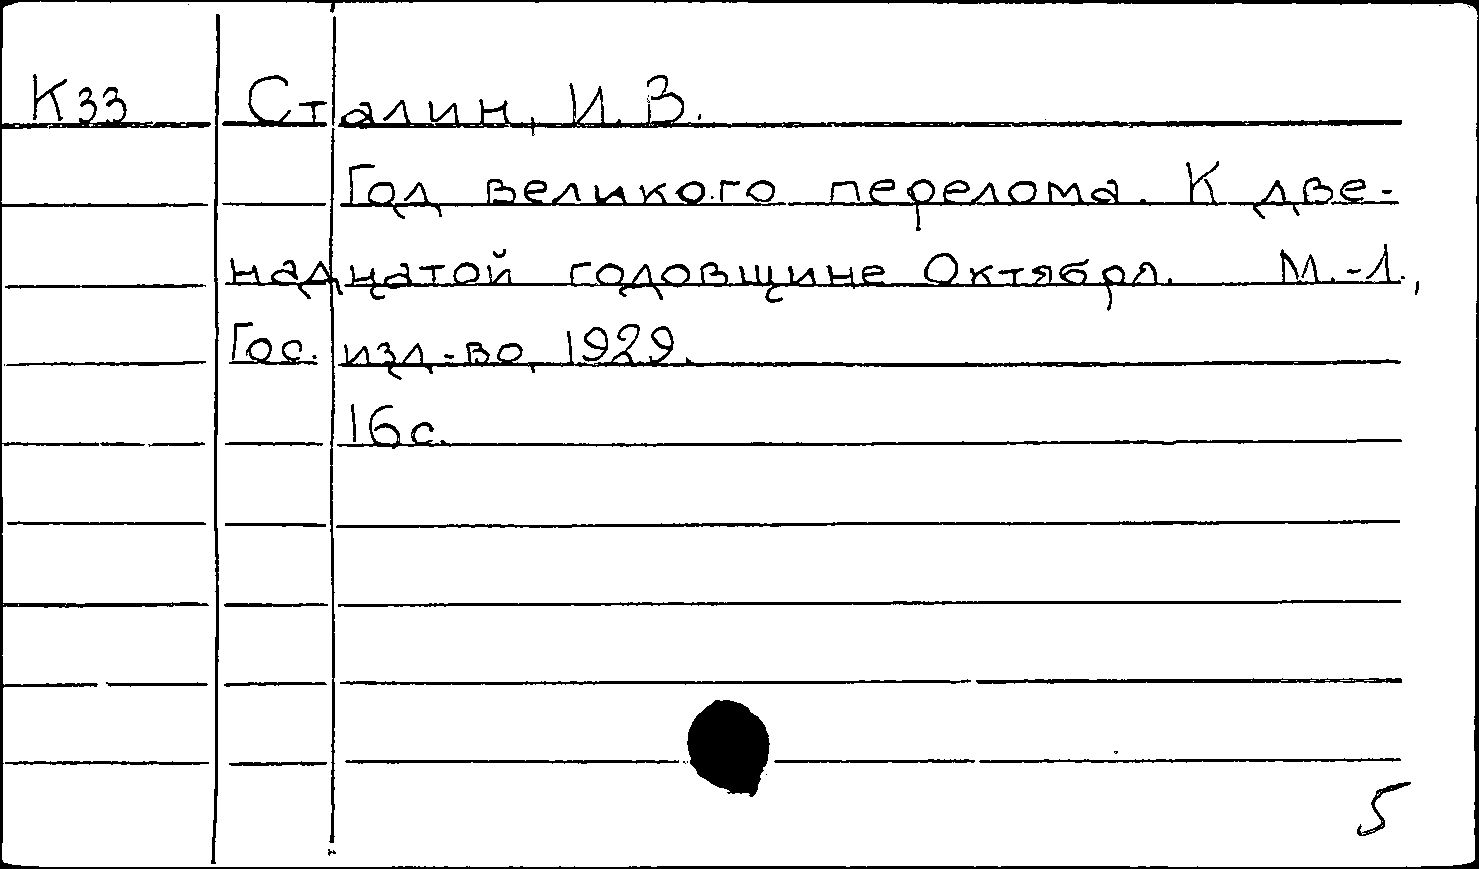 К33 Сталин, И. В.
Год великого перелома. К две-
надцатой годовщине Октября. М.-Л.,
Гос. изд-во, 1929.
16с.
5